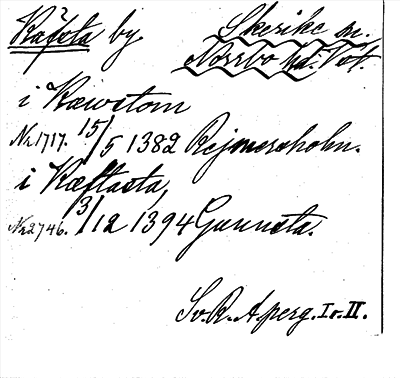 Käfsta by Skerike sn.
Norrbo hd. Vstm.
i Kæwstom
Nr 1717. 15/5 1382 Rejmersholm.
i Kæftasta,
Nr 2746. 3/12 1394 Gunnsta.
Sv. R. Aperg. I o. II.